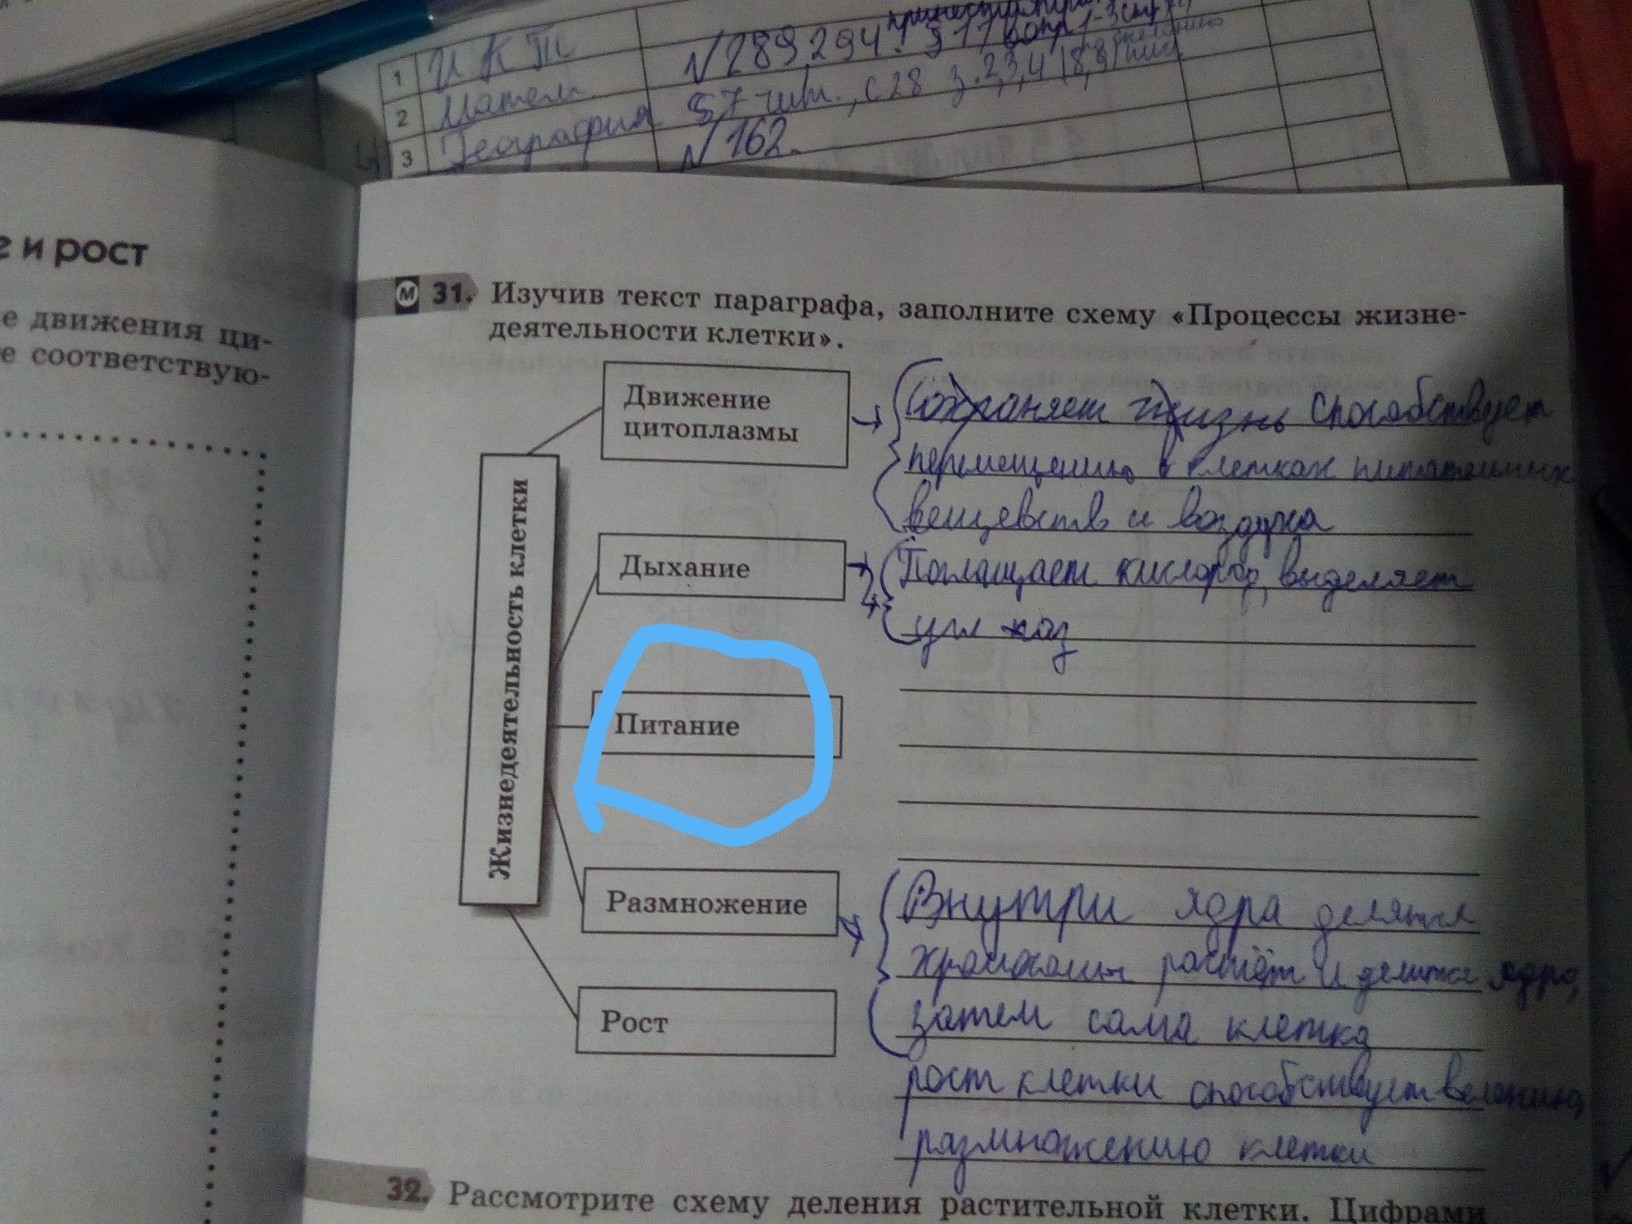 1 ИКТ
2 Матем №289,294, §11 вопр 1-3
3 География §7 чит., с28 з.2,3,4
№162.
и рост
е движения ци-
е соответствую-
М 31. Изучив текст параграфа, заполните схему «Процессы жизне-
деятельности клетки».
Жизнедеятельность клетки
Движение
цитоплазмы
Сохраняет жизнь способствует
перемещению в клетках питательных
вещевств и воздуха
Дыхание
Поглащает кислород, выделяет
угл газ
Питание
Размножение
Внутри ядра делятся
растёт и делится ядро,
затем сама клетка
Рост
рост клетки способствует
размножению клетки
32. Рассмотрите схему деления растительной клетки. Цифрами